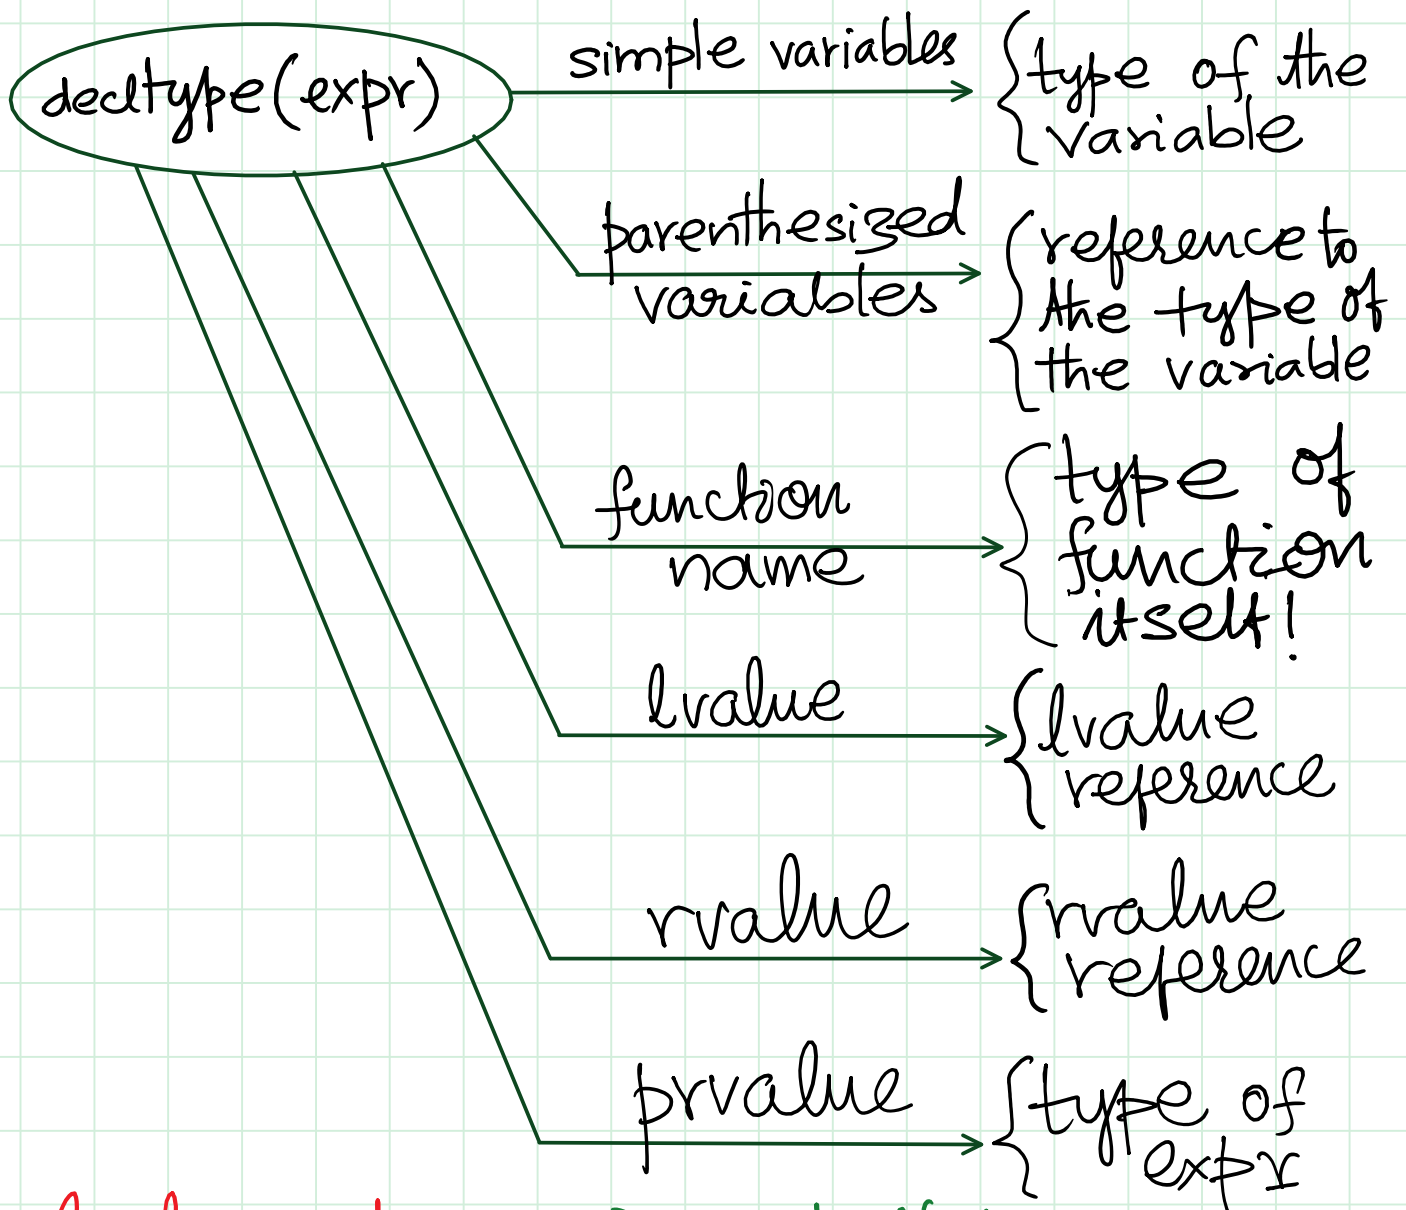 decltype(expr)
simple variables
type of the
variable
parenthesized
variables
reference to
the type of
the variable
function
name
type of
function
itself!
lvalue
lvalue
reference
rvalue
rvalue
reference
prvalue
type of
expr